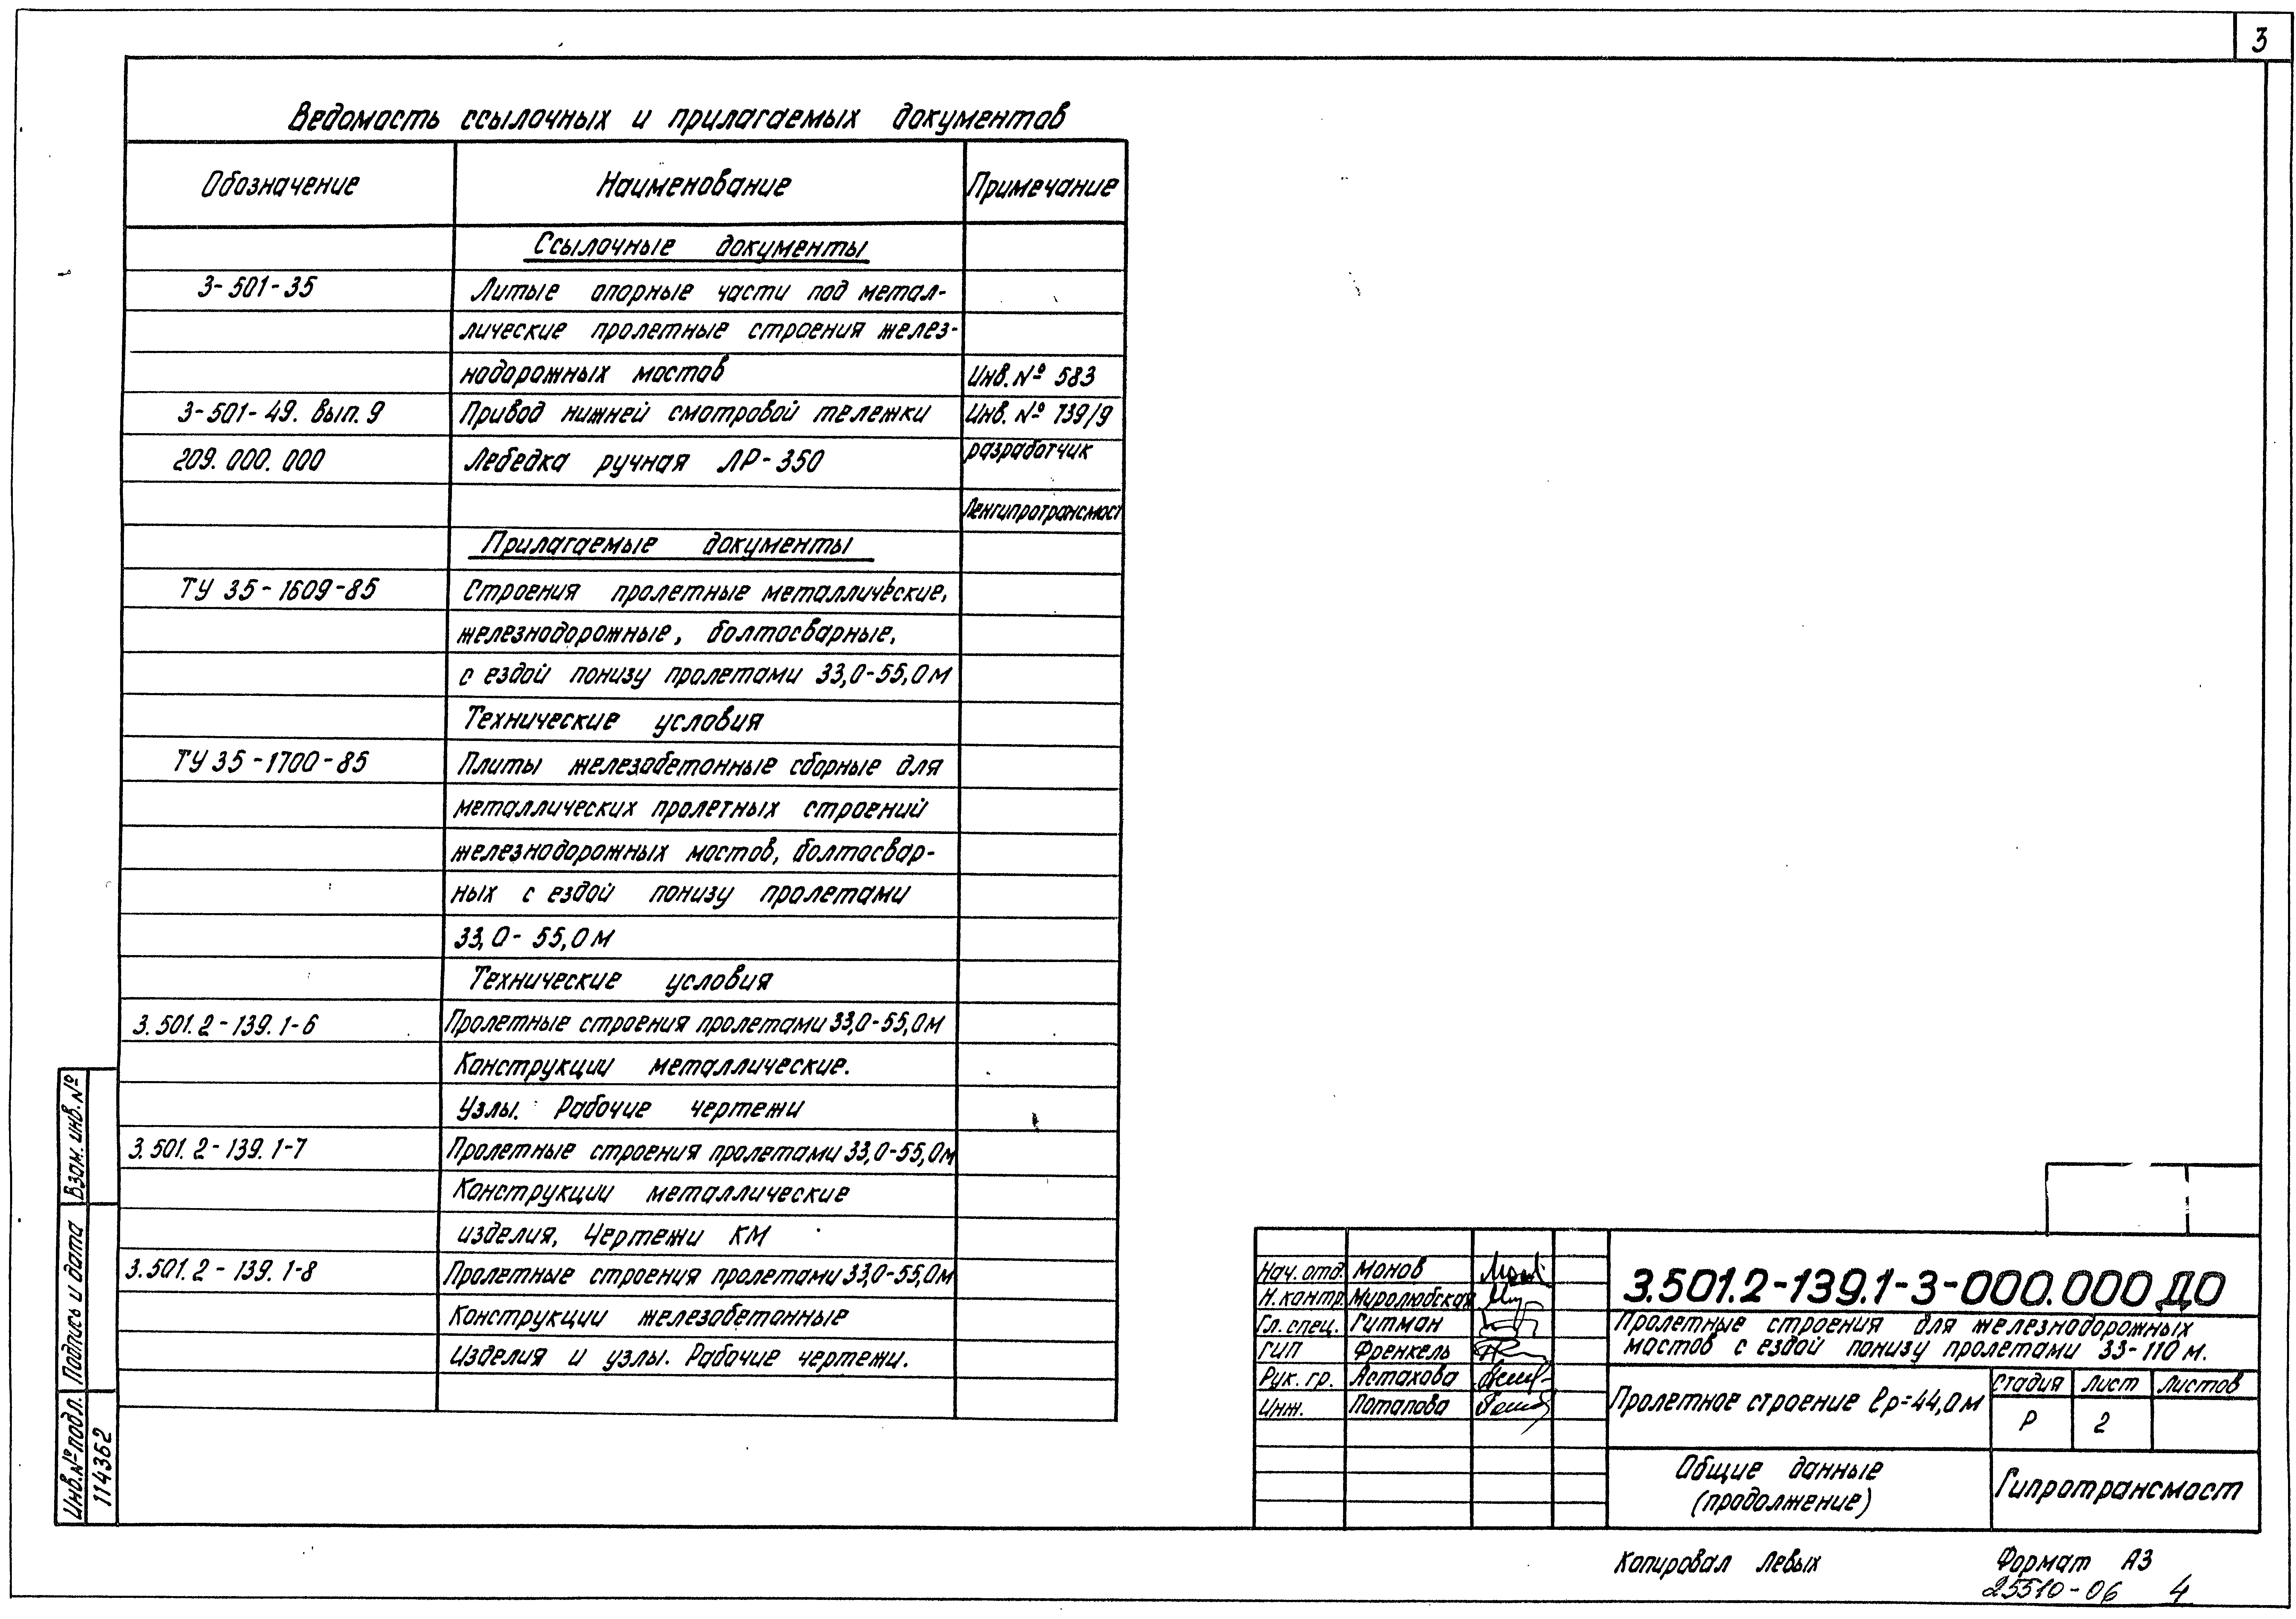 3
Ведомость ссылочных и прилагаемых документов
Обозначение Наименование Примечание
Ссылочные документы
3-501-35 Литые опорные части под метал-
лические пролетные строения желез-
нодорожных мостов Инв. № 583
3-501-49. вып. 9 Привод нижней смотровой тележки Инв. № 739/9
209.000.000 Лебедка ручная ЛР-350 разработчик
Ленгипротрансмост
Прилагаемые документы
ТУ 35-1609-85 Строения пролетные металлические,
железнодорожные, болтосварные,
с ездой понизу пролетами 33,0-55,0м
Технические условия
ТУ 35-1700-85 Плиты железобетонные сборные для
металлических пролетных строений
железнодорожных мостов, болтосвар-
ных с ездой понизу пролетами
33,0-55,0м
Технические условия
3.501.2-139.1-6 Пролетные строения пролетами 33,0-55,0м
Конструкции металлические.
Узлы. Рабочие чертежи
3.501.2-139.1-7 Пролетные строения пролетами 33,0-55,0м
Конструкции металлические
изделия, Чертежи КМ
3.501.2-139.1-8 Пролетные строения пролетами 33,0-55,0м
Конструкции железобетонные
Изделия и узлы. Рабочие чертежи.
Взам. инв. №
Подпись и дата
Инв.№подл.
114362
Нач. отд. Монов
Н. контр. Миролюбская
Гл. спец. Гитман
ГИП Френкель
Рук. гр. Астахова
Инж. Потапова
3.501.2-139.1-3-000.000 ДО
Пролетные строения для железнодорожных
мостов с ездой понизу пролетами 33-110 м.
Пролетное строение ℓр=44,0м
Стадия Лист Листов
Р 2
Общие данные
(продолжение)
Гипротрансмост
Копировал Левых Формат А3
25510-06 4